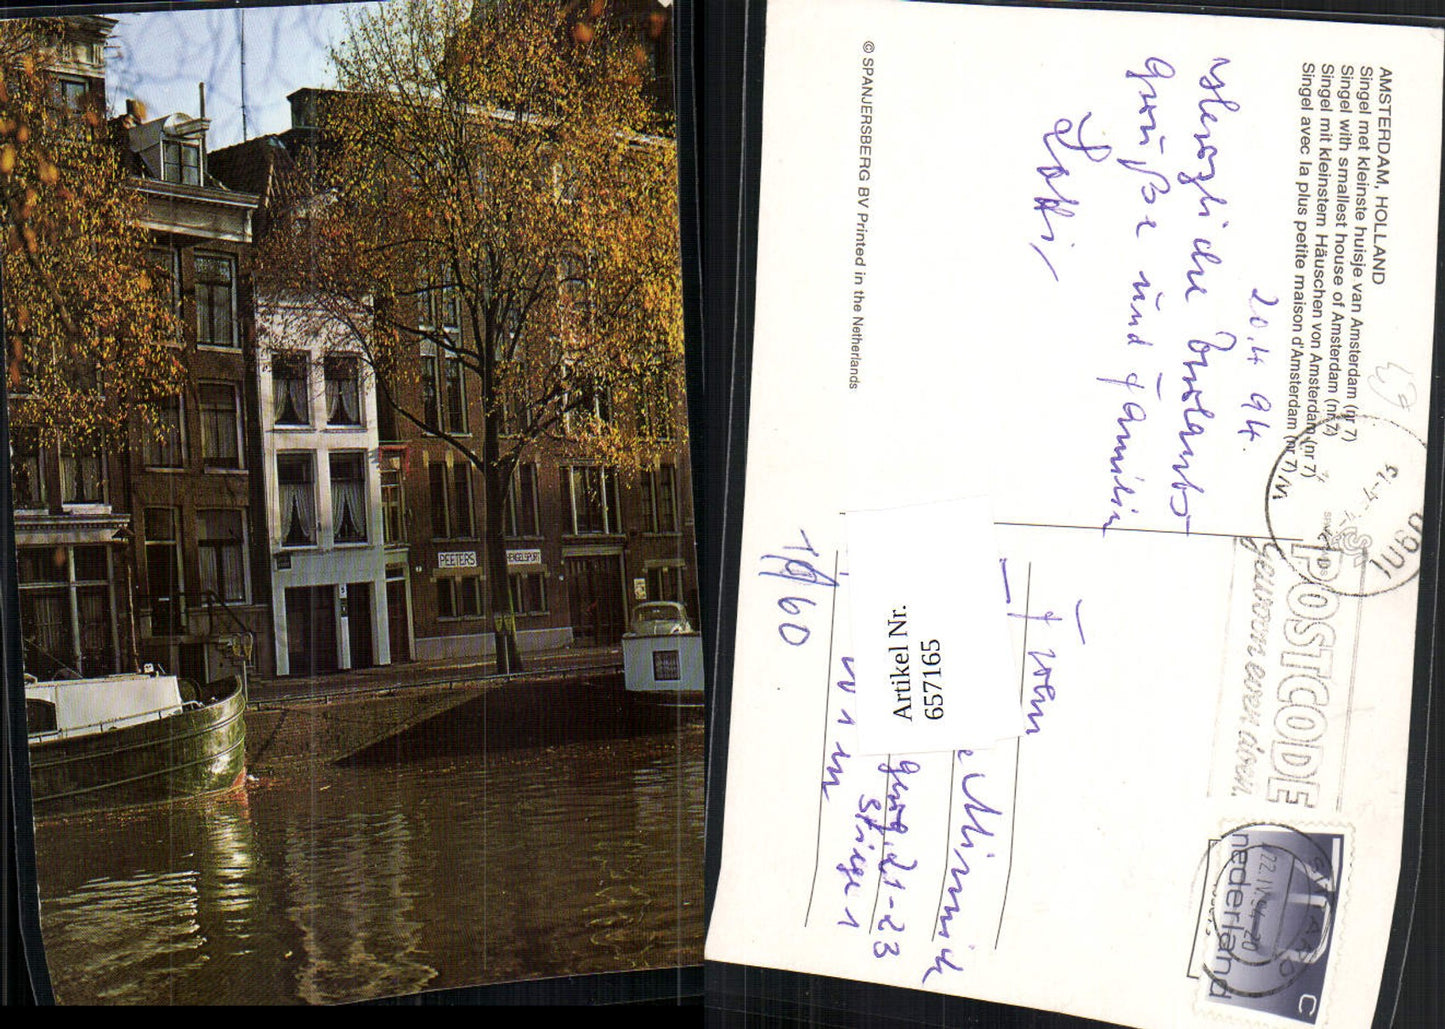 PEETERS
HENGELSPORT
AMSTERDAM, HOLLAND
Singel met kleinste huisje van Amsterdam (nr 7)
Singel with smallest house of Amsterdam (nr 7)
Singel mit kleinstem Häuschen von Amsterdam (nr 7)
Singel avec la plus petite maison d'Amsterdam (nr 7)
20.4.94.
Urlaubs
grüße und Familie
Lotti
© SPANJERSBERG BV Printed in the Netherlands
POSTCODE
gewoon even doen.
nederland
22.IV.94-20
Artikel Nr.
657165
21-23
Stiege 1
Wien
1160